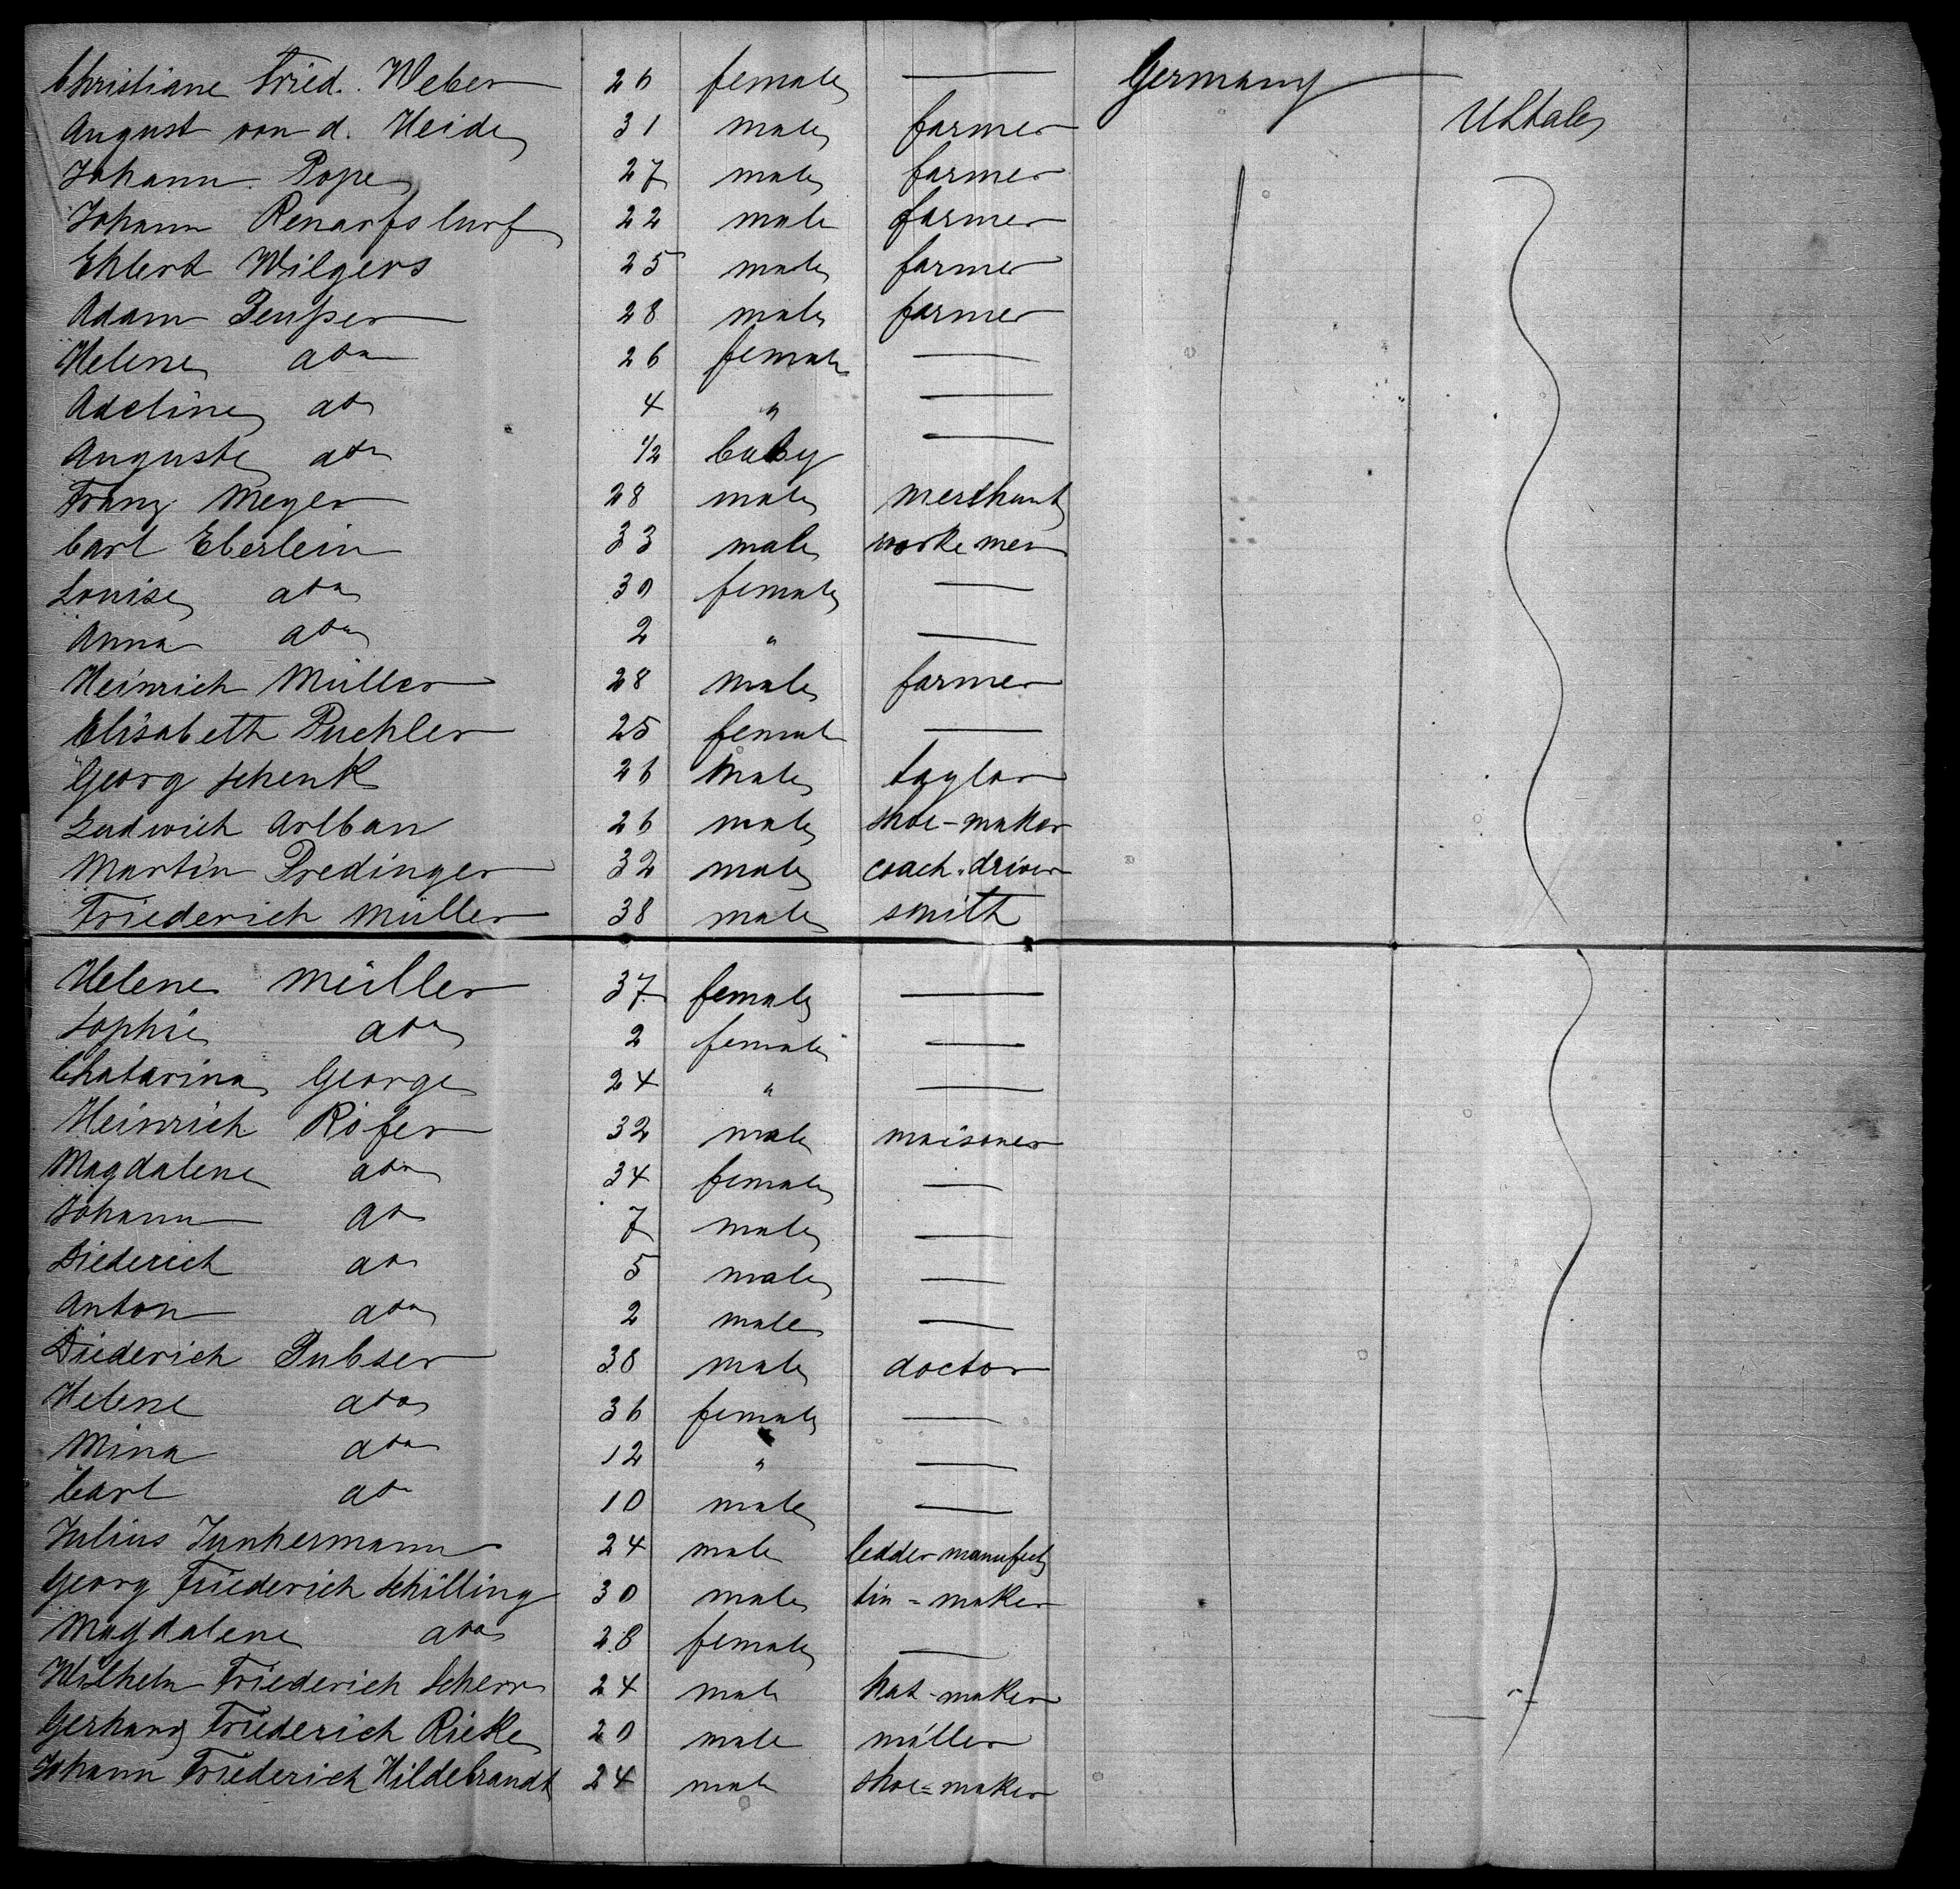 Christiane Fried. Weber 26 female — Germany
August von d. Heide 31 male farmer UStates
Johann Pope 27 male farmer
Johann 22 male farmer
Ehlert Wilgers 25 male farmer
Adam 28 male farmer
Helene dto 26 female —
Adeline do 4 " —
Auguste dto 1/2 baby —
Franz Meyer 28 male merchant
Carl Eberlein 33 male worke men
Louise dto 30 female —
Anna dto 2 " —
Heinrich Müller 28 male farmer
Elisabeth Puchler 25 female —
Georg Schenk 26 male taylor
Ludwich Arlban 26 male shoe-maker
Martin Predinger 32 male coach-driver
Friederich Müller 38 male smith
Helene Müller 37 female —
Sophie dto 2 female —
Chatarina George 24 " —
Heinrich Röfer 32 male maisoner
Magdalene dto 34 female —
Johann do 7 male —
Diederich do 5 male —
Anton dto 2 male —
Diederich Pubser 38 male doctor
Helene dto 36 female —
Mina dto 12 " —
Carl do 10 male —
Julius Junkermann 24 male ledder manufect
Georg Friederich Schilling 30 male tin-maker
Magdalene dto 28 female —
Wilhelm Friederich Scherr 24 male hat-maker
Gerhard Friederich Rieke 20 male miller
Johann Friederich Hildebrandt 24 male shoe-maker